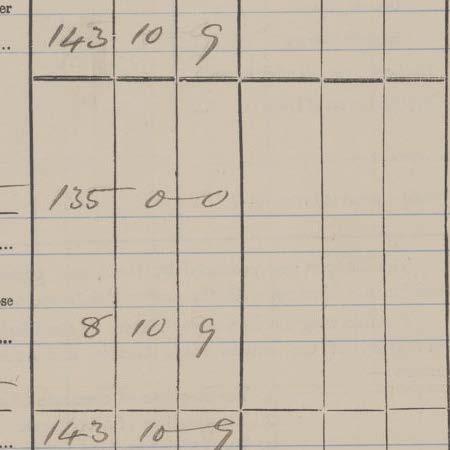 er
... 143 10 9
135 0 0
...
ose
... 8 10 9
... 143 10 9